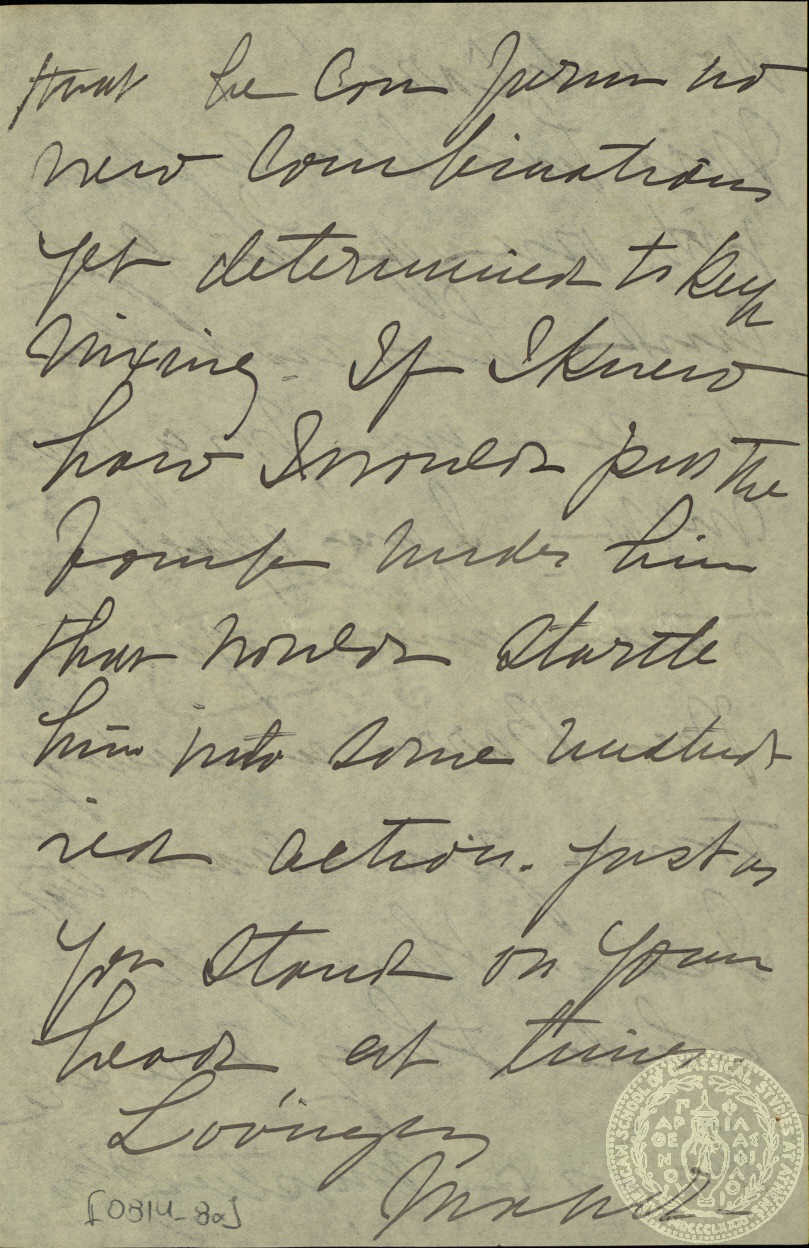 that he can form no
new combinations
yet determined to keep
mixing. If I knew
how I would put the
under him
that would startle
him into some unstud
ied action. Just as
you stand on your
head at times
Lovingly
[0314-8a]
AMERICAN SCHOOL OF CLASSICAL STUDIES AT ATHENS
MDCCCLXXXI